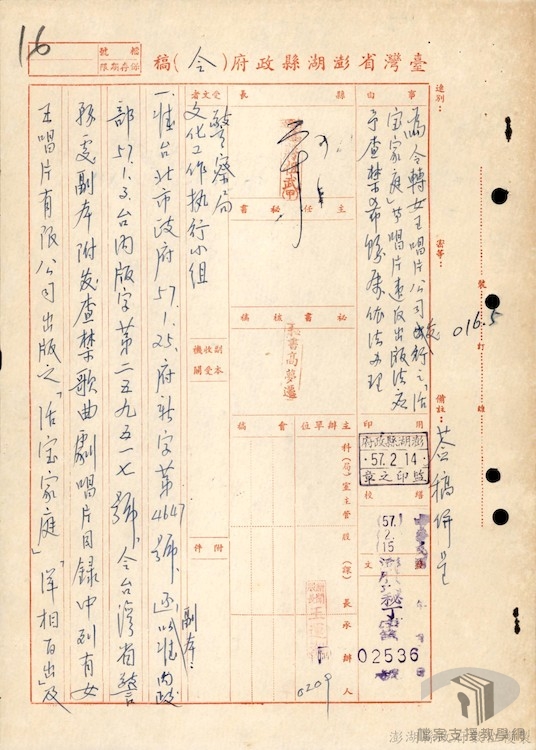 16
檔號
保存期限
臺灣省澎湖縣政府(令)稿
速別：
密等：
備註：
荅稿併呈
016.5
號
訂
線
事由
為令轉女王唱片公司發行之「活
宝家庭」等唱片違反出版法應
予查禁希飭屬依法办理
縣長
主任秘書
秘書核稿
秘書高夢遷
受文者
警察局
文化工作执行小组
副本收受機關
附件
主辦單位
科(局)室主管
股(課)長
承辦人
會稿
0209
用印
澎湖縣政府
57.2.14
監印之章
校
繕
57.2.15
發文
字
02536
一、准台北市政府57.1.25.府新字第4647號副本：「以准內政
部57.1.3.台內版字第二五九五一七號令台灣省警
務處副本附发查禁歌曲劇唱片目録中列有女
王唱片有限公司出版之「活宝家庭」「洋相百出」及
檔案支援教學網